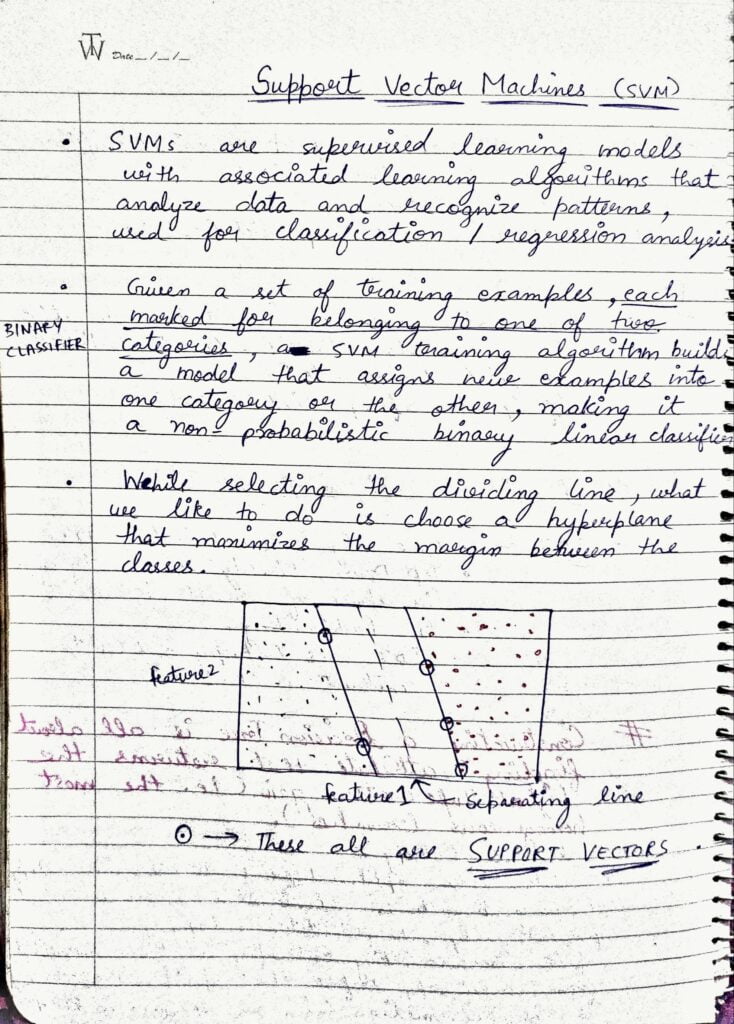 TW Date __/__/__
Support Vector Machines (SVM)
• SVMs are supervised learning models
with associated learning algorithms that
analyze data and recognize patterns,
used for classification / regression analysis
• Given a set of training examples, each
marked for belonging to one of two
BINARY
CLASSIFIER
categories, a SVM training algorithm builds
a model that assigns new examples into
one category or the other, making it
a non-probabilistic binary linear classifier
• While selecting the dividing line, what
we like to do is choose a hyperplane
that maximizes the margin between the
classes.
feature2
feature1
Separating line
⊙ → These all are SUPPORT VECTORS.